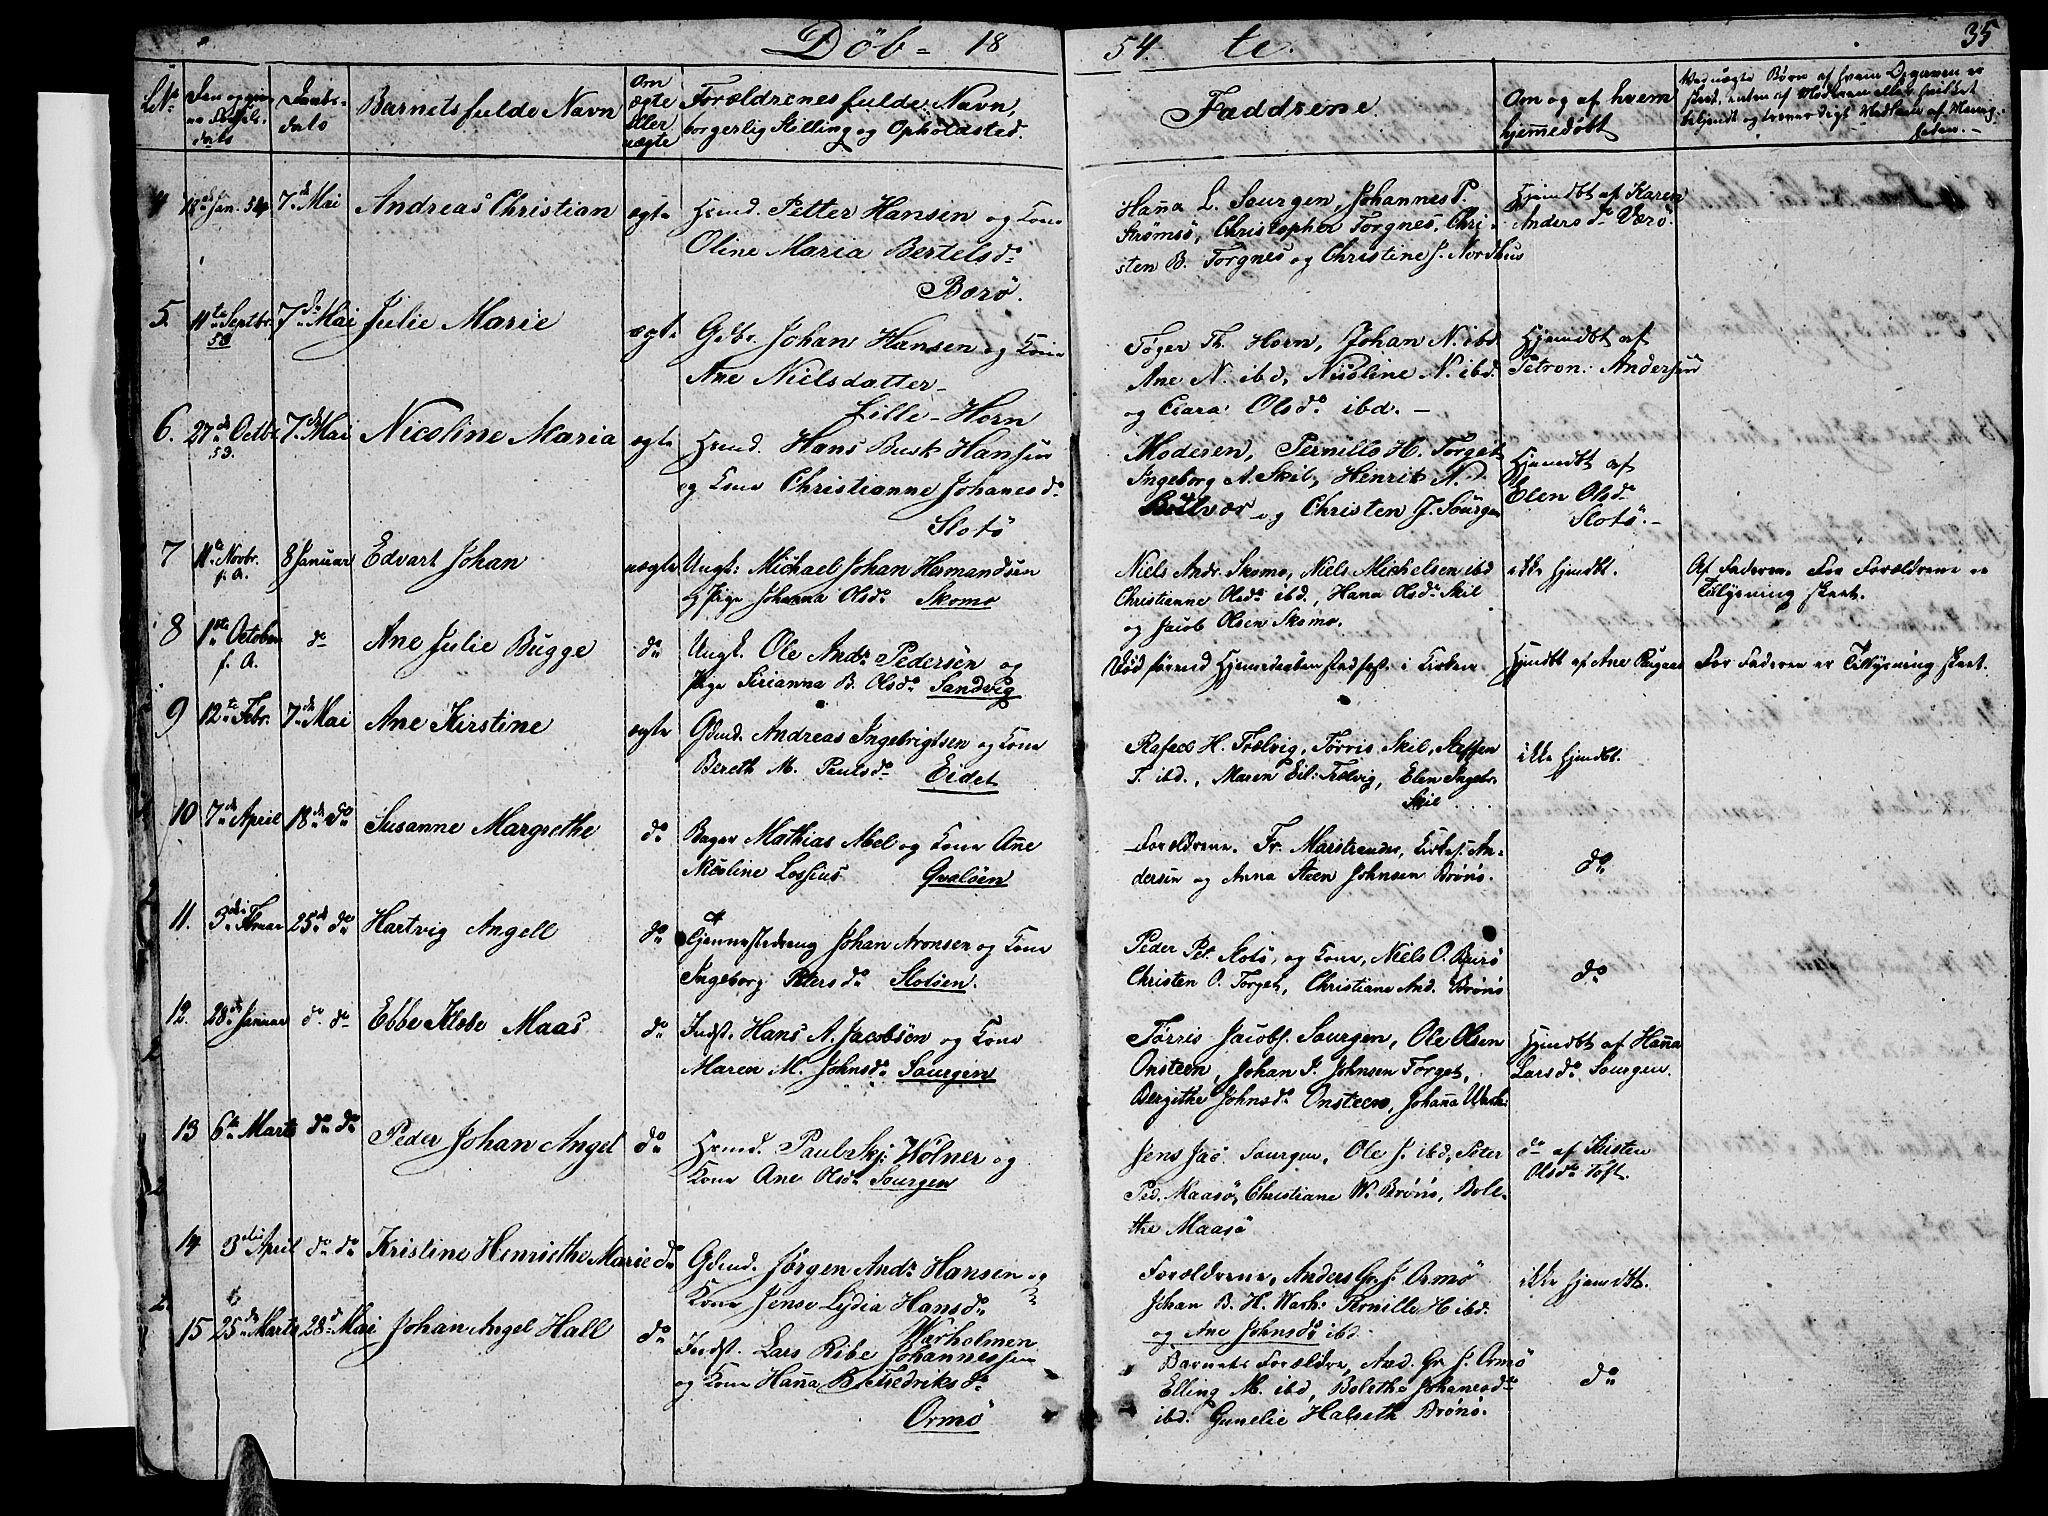 Döb- 18 54. te. 35
No. Den og
dato
Daabs-
dato
Barnets fulde Navn
Om
ægte
eller
uægte
Forældrenes fulde Navn,
borgerlig Stilling og Opholdsted.
Faddrene.
Om og af hvem
hjemmedöbt
4 18de Jan. 54 7de Mai Andreas Christian ægte Hrmd. Petter Hansen og Kone
Oline Maria Bertelsdr
Borö.
Hanna L. Sourgen, Johannes P.
Strömsö, Christopher Torgnes, Chri-
sten B. Torgnes og Christine J. Nordhus
Hjemdbt af Karen
Andersdr Værö.
5. 11te Septbr. 53 7de Mai Julie Marie ægte Gdbr. Johan Hansen og Kone
Ane Nielsdatter
Lille-Horn
Töger Th. Horn, Johan N. ibd
Ane N. ibd, Nicoline N. ibd.
og Clara Olsdr ibd. -
Hjemdbt af
Petron. Andersen
6. 27de Octbr. 53. 7de Mai Nicoline Maria ægte Hrmd. Hans Busk Hansen
og Kone Christianne Johanesdr
Slotö
Modesen, Pernille H. Torget
Ingeborg A. Skil, Henrik N.
og Christen J. Sourgen
Hjemdbt af
Elen Olsdr
Slotö. -
7 11te Novbr. f. A. 8 Januar Edvart Johan uægte Ungk: Michael Johan Hermandsen
og Pige Johanna Olsdr Skomo
Niels Andr. Skomo, Niels Michelsen ibd
Christianne Olsdr ibd., Hana Olsdr Skil
og Jacob Olsen Skomo.
ikke hjemdbt.
Af Faderen. For Forældrene er
Tillysning skeet.
8 1ste October f. A. do Ane Julie Bugge do Ungk. Ole Andr. Pedersen og
Pige Sirianna B. Olsdr Sandvig
Död förend Hjemedaaben stadfæst. i Kirken
Hjemdbt af Ane
For Faderen er Tillysning skeet.
9 12te Febr. 7de Mai Ane Kirstine ægte Gdmd. Andreas Ingebrigtsen og Kone
Bereth M. Paulsdr Eidet
Rafael H. Trælvig, Törris Skil, Steffen
T. ibd., Maren Eil: Trælvig, Elen Ingebr.
Skil
ikke hjemdbt.
10 7de April 18de do Susanne Margrethe do Bager Mathias Abel og Kone Ane
Nicoline Lossius Qvalöen
Forældrene. Fr. Marstrander, Kirkes. An-
dersen og Anna Steen Johnsen Brönö.
do
11. 3die Februar 25de do Hartvig Angell do Tjennestedreng Johan Aronsen og Kone
Ingeborg Petersdr Slotöen.
Peder Pet. Slotö, og Kone, Niels O. Burö
Christen O. Torget, Christiane And. Brönö
do
12. 28de Januar do. do Ebbe Klobe Maas do Indst. Hans A. Jacobsen og Kone
Maren M. Johnsdr Sourgen
Törris Jacobs. Sourgen, Ole Olsen
Onsteen, Johan J. Johnsen Torget,
Bergithe Johnsdr Onsteen, Johana Warh:
Hjemdbt af Hanna
Larsdr Sourgen.
13 6te Marts do do Peder Johan Angel do Hrmd. Paul Skj: Hölner og
Kone Ane Olsdr Sourgen
Jens Jac. Sourgen, Ole J. ibd, Peter
Ped. Maasö, Christiane W. Brönö, Bole-
the Maasö
do af Kristen
Olsdr Toft.
14 3die April do do Kristine Henriethe Marie do Gdmd. Jörgen Andr. Hansen og
Kone Jense Lydia Hansdr
Warholmen
Forældrene, Anders Gr. J. Ormö
Johan B. H. Warh: Pernille H ibd.
og Ane Johnsdr ibd.
ikke hjemdbt.
15 25de Marts 28de Mai Johan Angel Hall do Indst. Lars Ribe Johannessen
og Kone Hanna B. Fredriksdr
Ormö
Barnets Forældre, And. Gr. J. Ormö
Elling M. ibd, Bolethe Johanesdr
ibd. Gunelie Halseth Brönö.
do